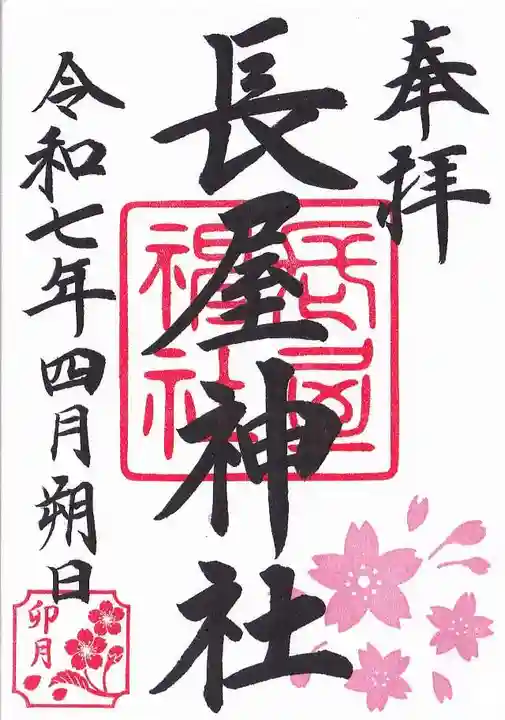 奉拝
長屋神社
長屋
神社
令和七年四月朔日
卯月